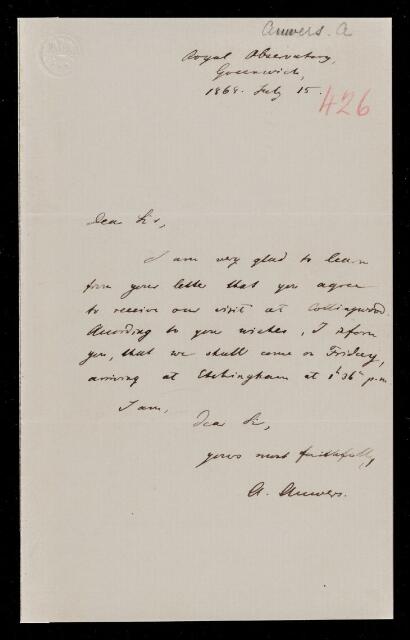 Auwers. A
Royal Observatory,
Greenwich,
1868. July 15.
426
Dear Sir,
I am very glad to learn
from your letter that you agree
to receive our visit at Collingwood.
According to your wishes, I inform
you, that we shall come on Friday,
arriving at Etchingham at 1h 36m p.m
I am,
Dear Sir,
yours most faithfully,
A. Auwers.